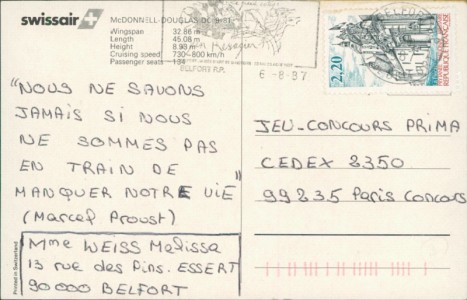 swissair
McDONNELL-DOUGLAS DC-9-81
Wingspan 32.88 m
Length 45.08 m
Height 8.93 m
Cruising speed 730-800 km/h
Passenger seats 134
BELFORT R.P.
6-8-87
BELFORT
2,20
REPUBLIQUE FRANÇAISE
"NOUS NE SAVONS
JAMAIS SI NOUS
NE SOMMES PAS
EN TRAIN DE
MANQUER NOTRE VIE"
(Marcel Proust)
Mme WEISS Melissa
13 rue des Pins. ESSERT
90000 BELFORT
JEU-CONCOURS PRIMA
CEDEX 2350
99235 Paris Concours
Printed in Switzerland